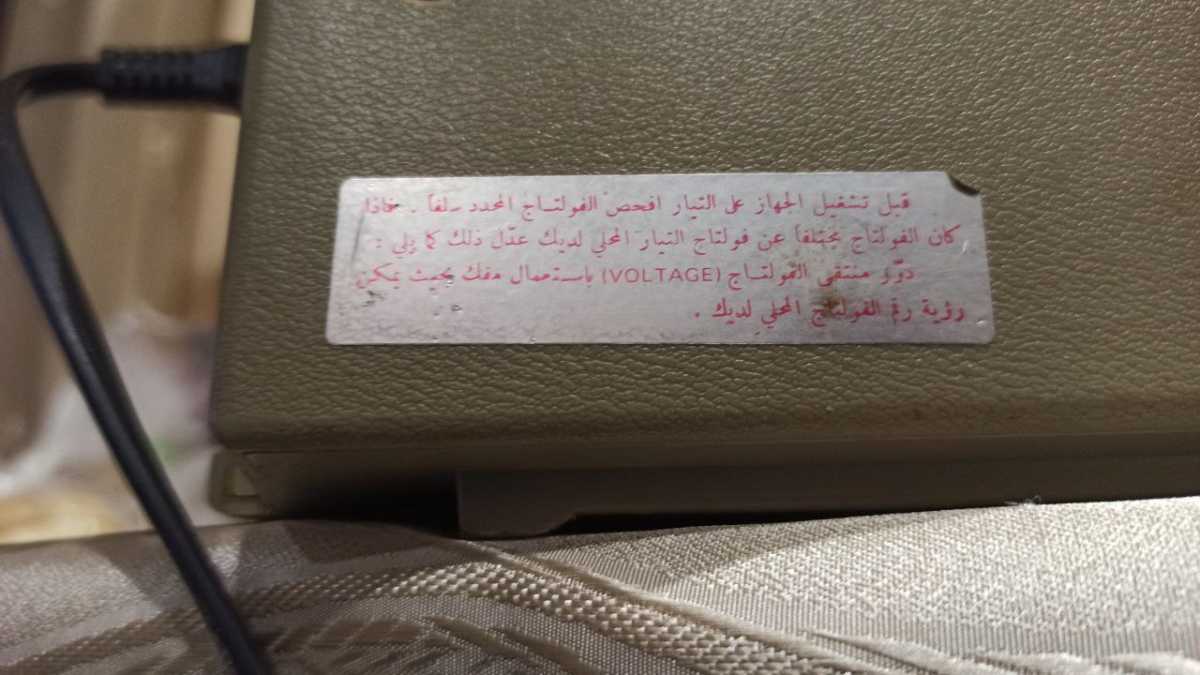 قبل تشغيل الجهاز على التيار افحص الفولتاج المحدد سلفاً . فاذا
كان الفولتاج مختلفاً عن فولتاج التيار المحلي لديك عدّل ذلك كما يلي :
دوّر منتقى الفولتاج (VOLTAGE) باستعمال مفك بحيث يمكن
رؤية رقم الفولتاج المحلي لديك .